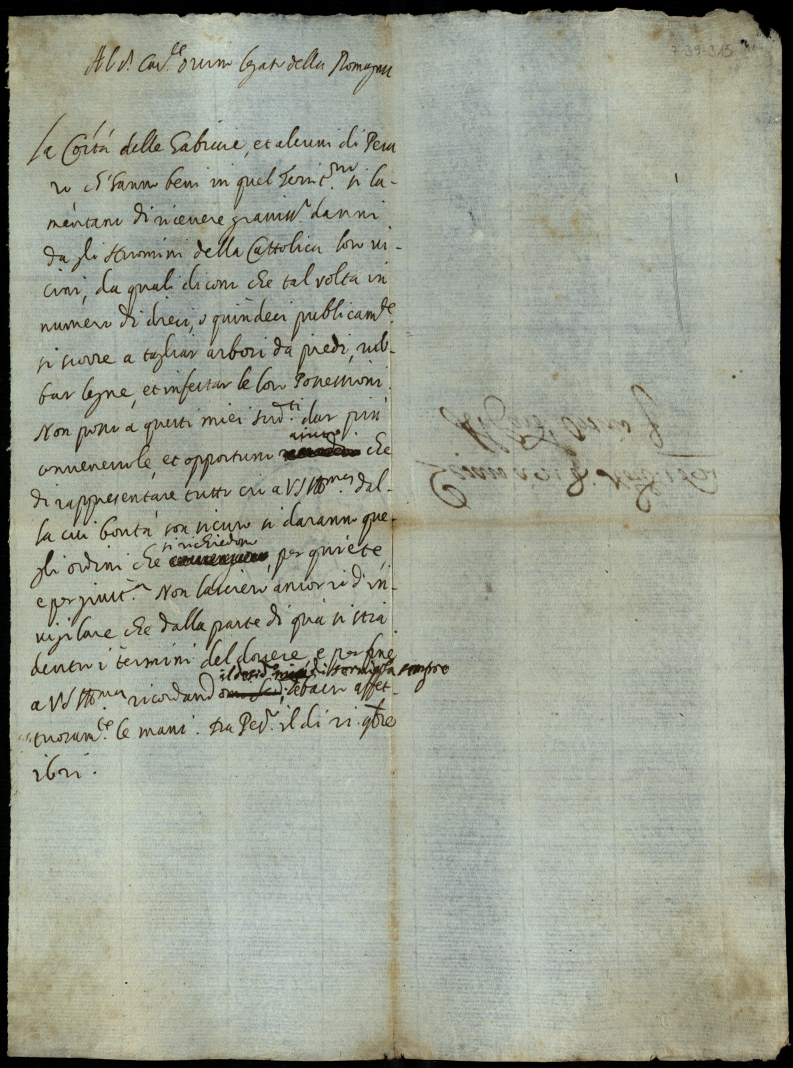 Al S.r Card.le Orsino legato della Romagna
7-39-315
La Co[mun]ità delle Gabicce, et alcuni di Pesa
ro ch'hanno beni in quel Territ.rio si la-
mentano di ricevere graviss.i danni
da gli Huomini della Cattolica loro vi-
cini, da quali dicono che tal volta in
numero di dieci, o quindeci publicam.te
si scorre a tagliar arbori da piedi, rub-
bar legne, et infestar le loro Possessioni.
Non posso a questi miei sud.ti dar più
convenevole, et opportuno aiuto che
di rappresentare tutto ciò a V S Ill.ma dal-
la cui bontà son sicuro si daranno que-
gli ordini che si richiedono, per quiete
e per giust.a Non lasciero ancor io d'in-
vigilare che dalla parte di quà si stia
dentro i termini del dovere, e per fine
a V S Ill.ma ricordando il desid.o di servirla sempre
bacio affet-
tuosam.te le mani. Da Pes.o il di 21 9bre